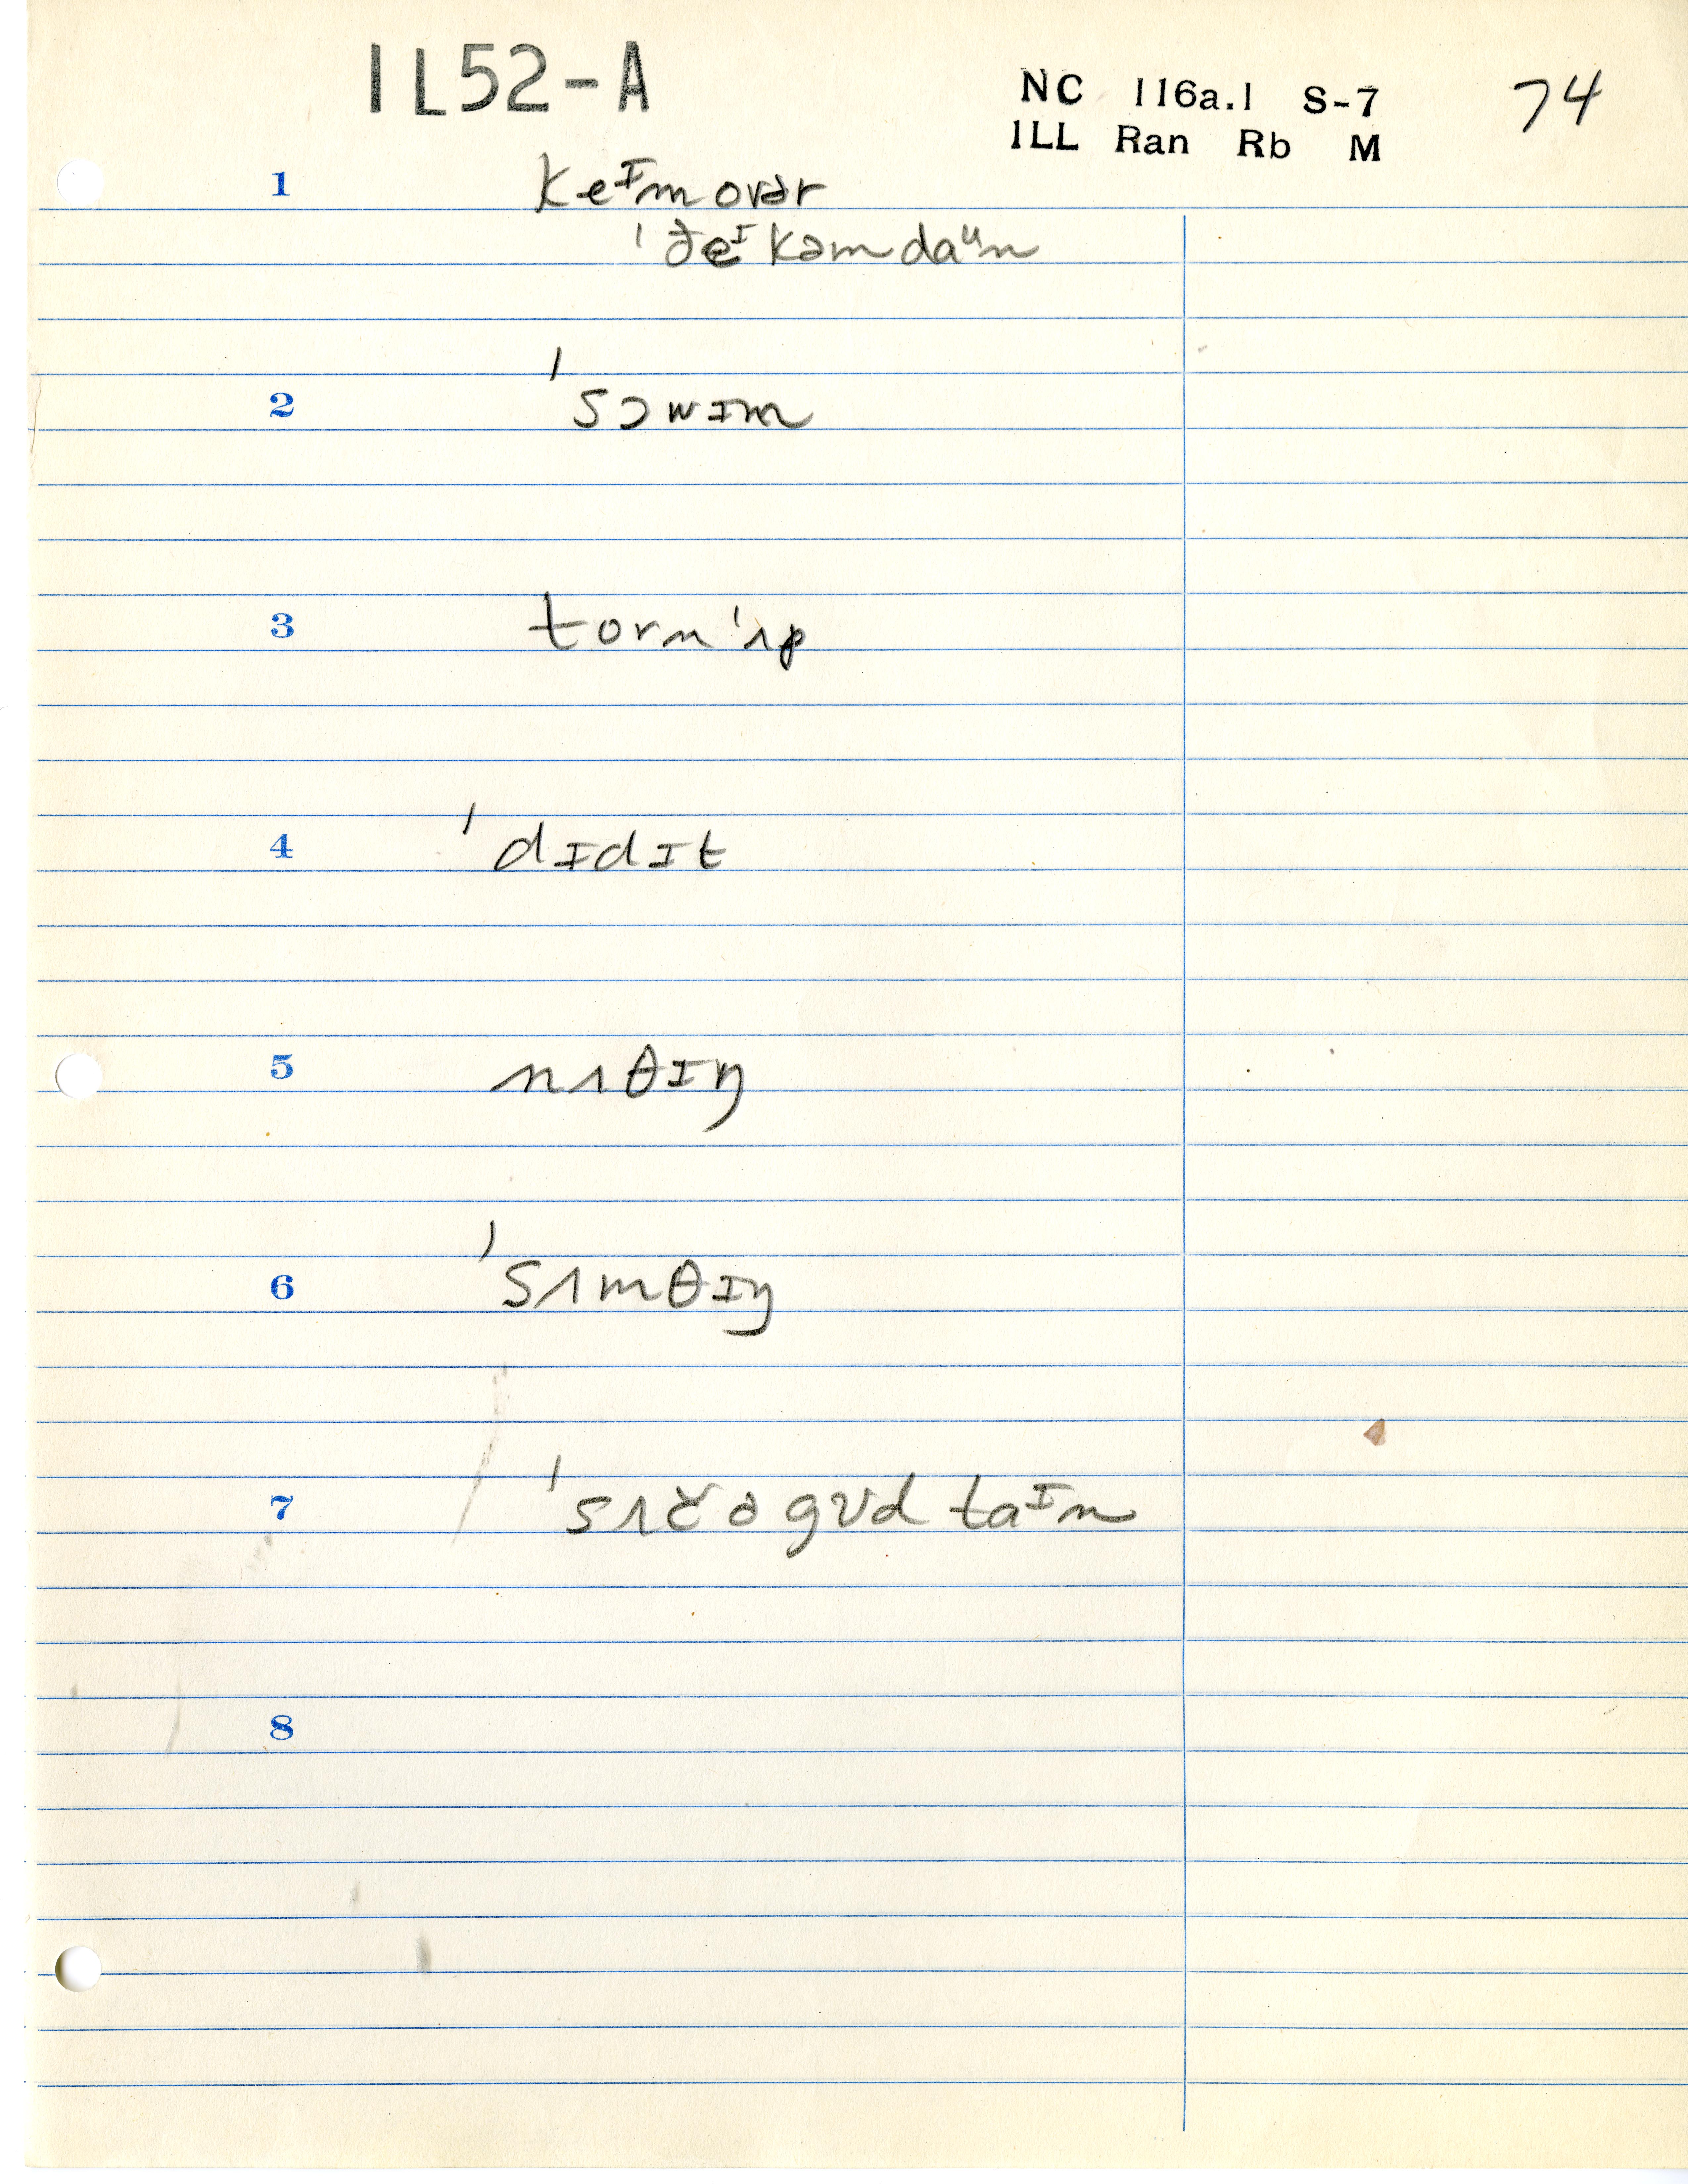 IL52-A
NC 116a.1 S-7 74
ILL Ran Rb M
1 keᴵm ovər
ˈðeᴵ kəm daᵘn
2 ˈsɔwɪm
3 torn ˈʌp
4 ˈdɪdɪt
5 nʌθɪŋ
6 ˈsʌmθɪŋ
7 ˈsʌč ə gʊd taᴵm
8